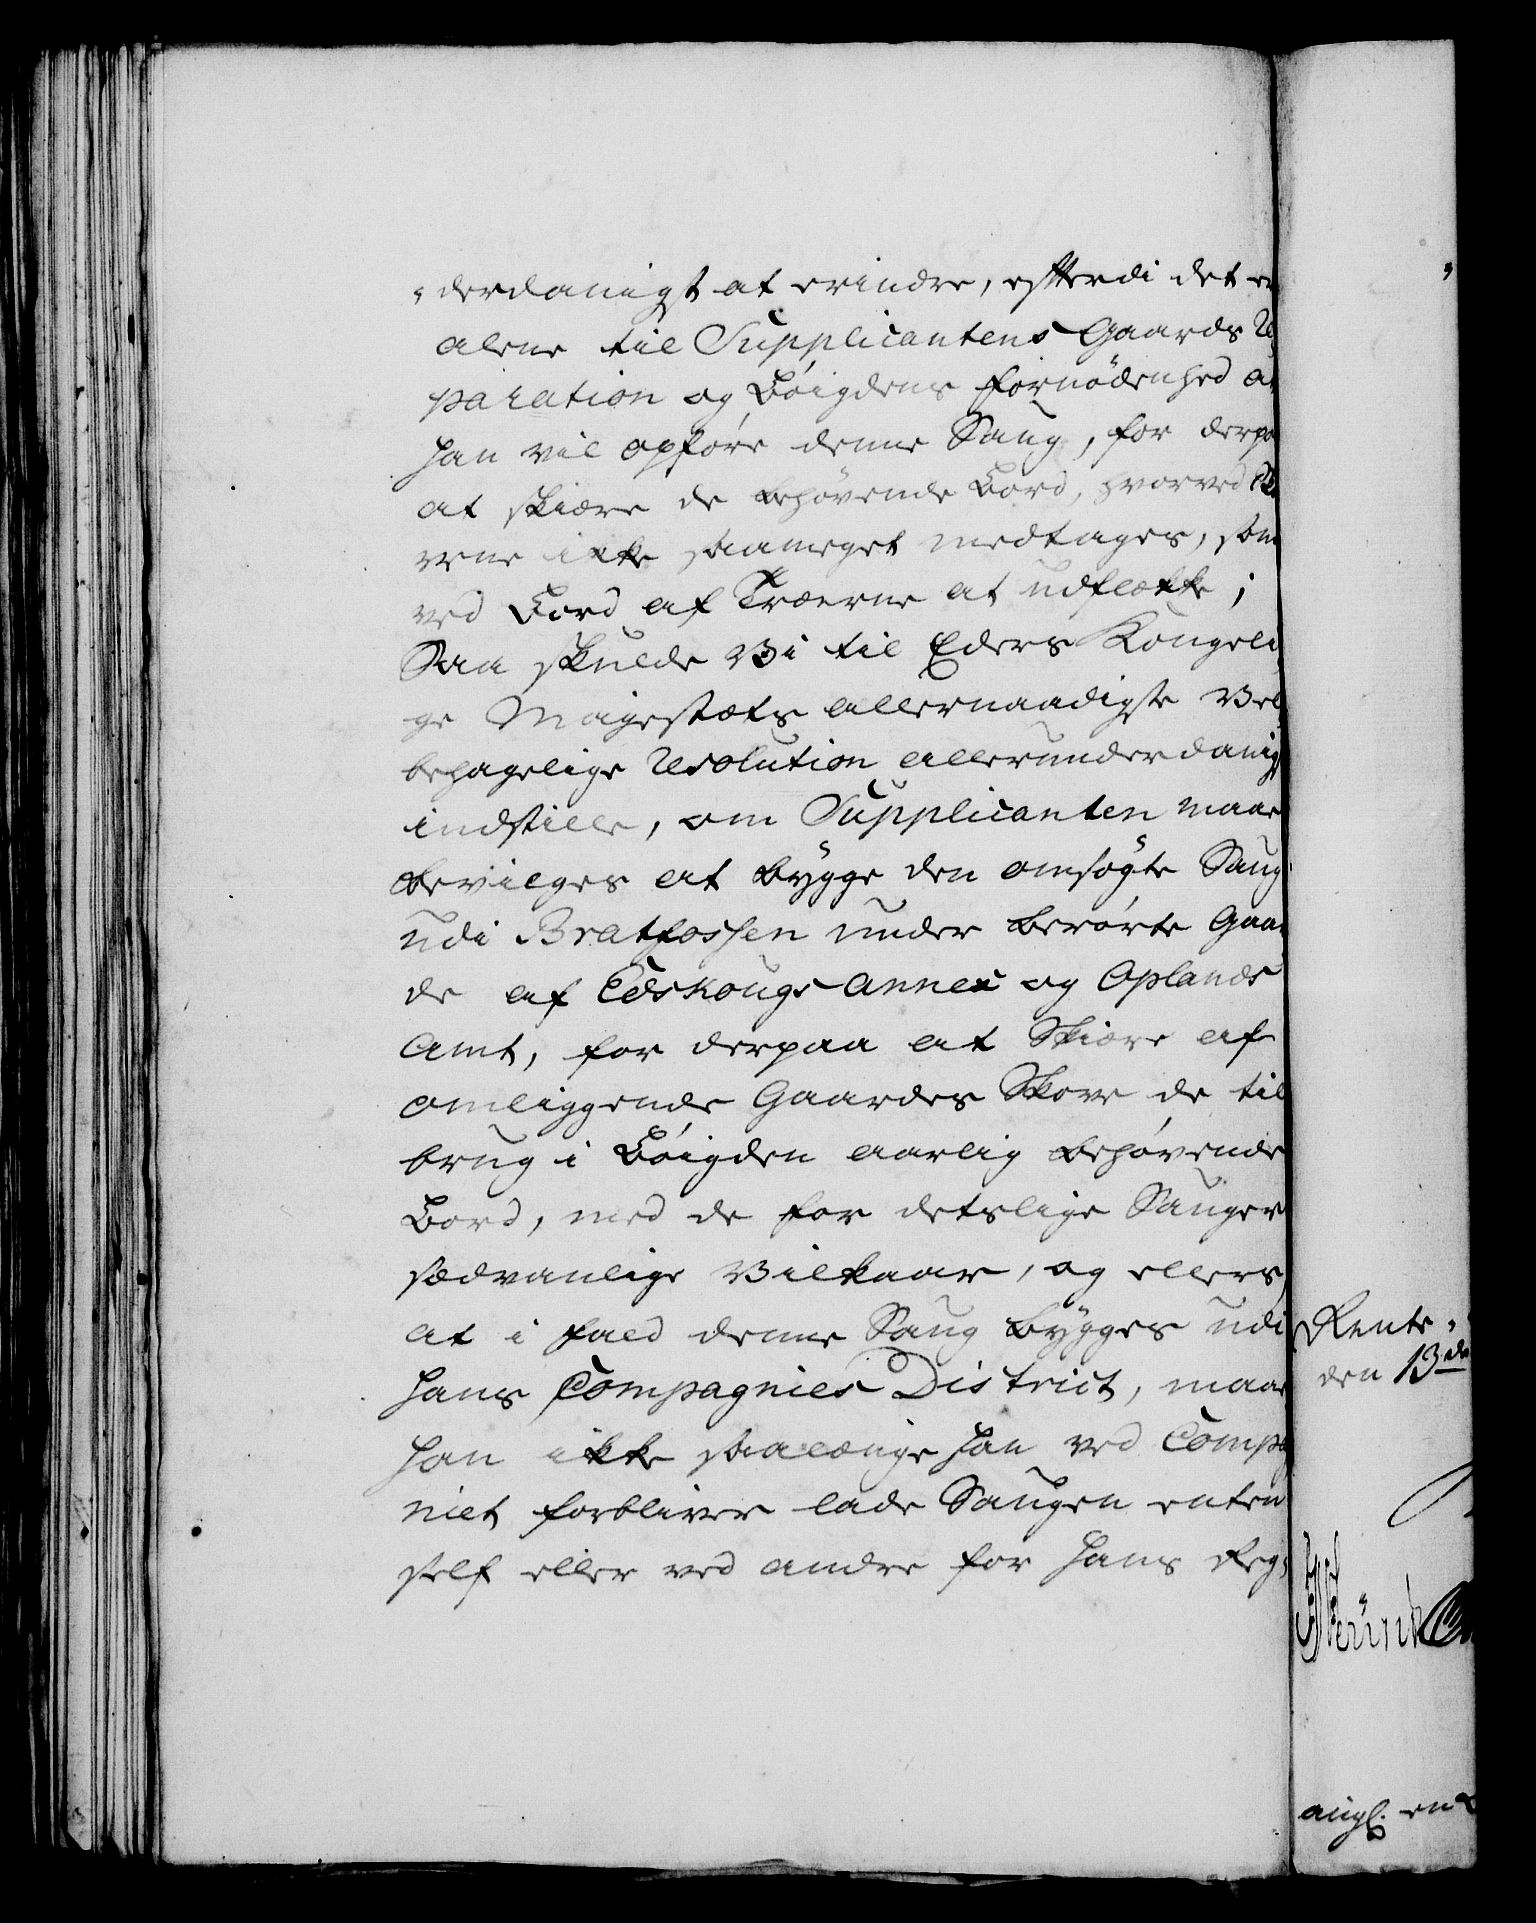 "derdanigst at erindre, efterdi det er
alene til Supplicantens Gaards Re
paration og Böigdens fornödenhed at
han vil opföre denne Saug, for derpaa
at skiære de behövende Bord, hvorved Sko
vene ikke saameget medtages, som
ved Bord af Træerne at udflække;
Saa skulde Vi til Eders Kongeli
ge Mayestæts allernaadigste Vel
behagelige Resolution allerunderdanigst
indstille, om Supplicanten maae
bevilges at bygge den omsögte Saug
udi Bratfossen under berörte Gaar
de af Edskougs Annex og Oplands
Amt, for derpaa at Skiære af
omliggende Gaardes Skove de til
brug i Böigden aarlig behövende
Bord, med de for detslige Sauger
sædvanlige Vilkaar, og ellers,
at i fald denne Saug bygges udi
hans Compagnies District, maae
han ikke saalænge han ved Compag
niet forbliver lade Saugen enten
self eller ved andre for hans Reg,
Rente,
den 13de
angl. en